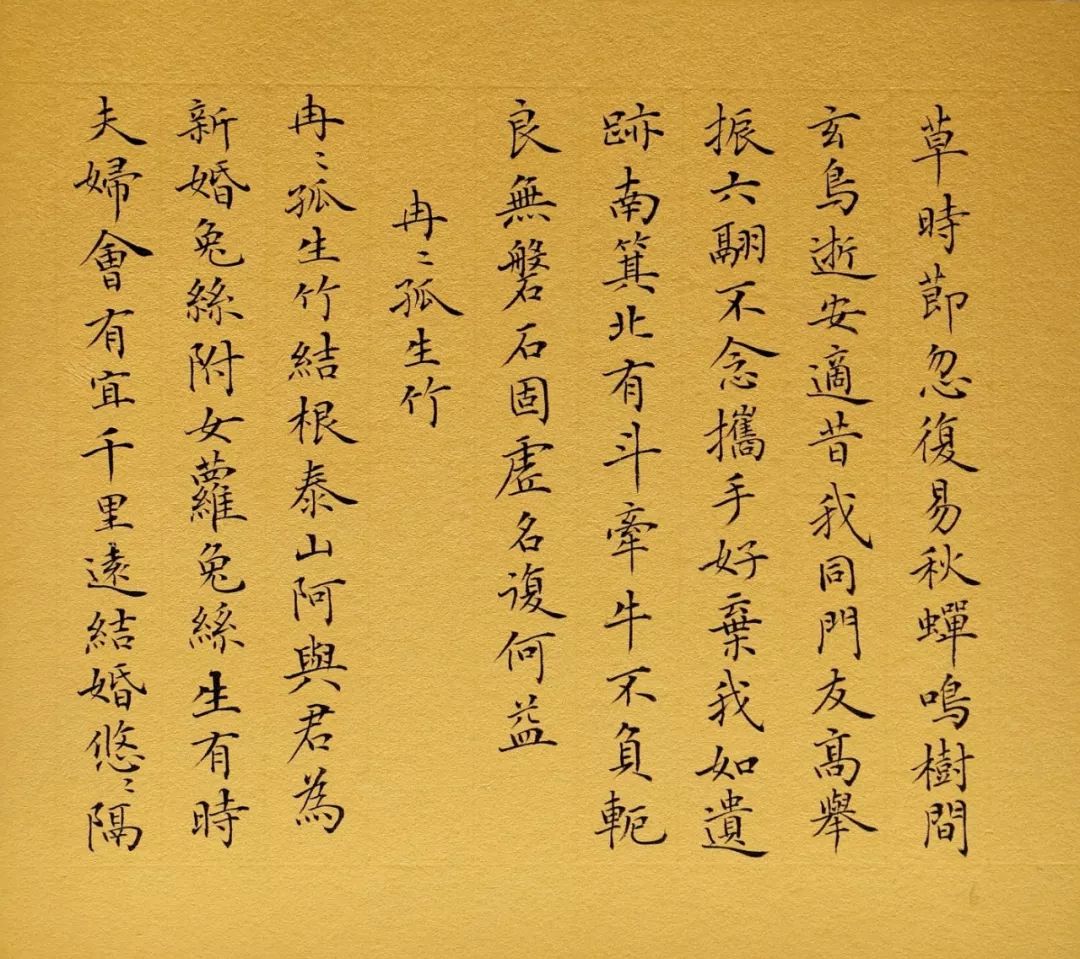 草時節忽復易秋蟬鳴樹間
玄鳥逝安適昔我同門友高舉
振六翮不念攜手好棄我如遺
跡南箕北有斗牽牛不負軛
良無磐石固虛名復何益
冉〻孤生竹
冉〻孤生竹結根泰山阿與君為
新婚兔絲附女蘿兔絲生有時
夫婦會有宜千里遠結婚悠〻隔
6